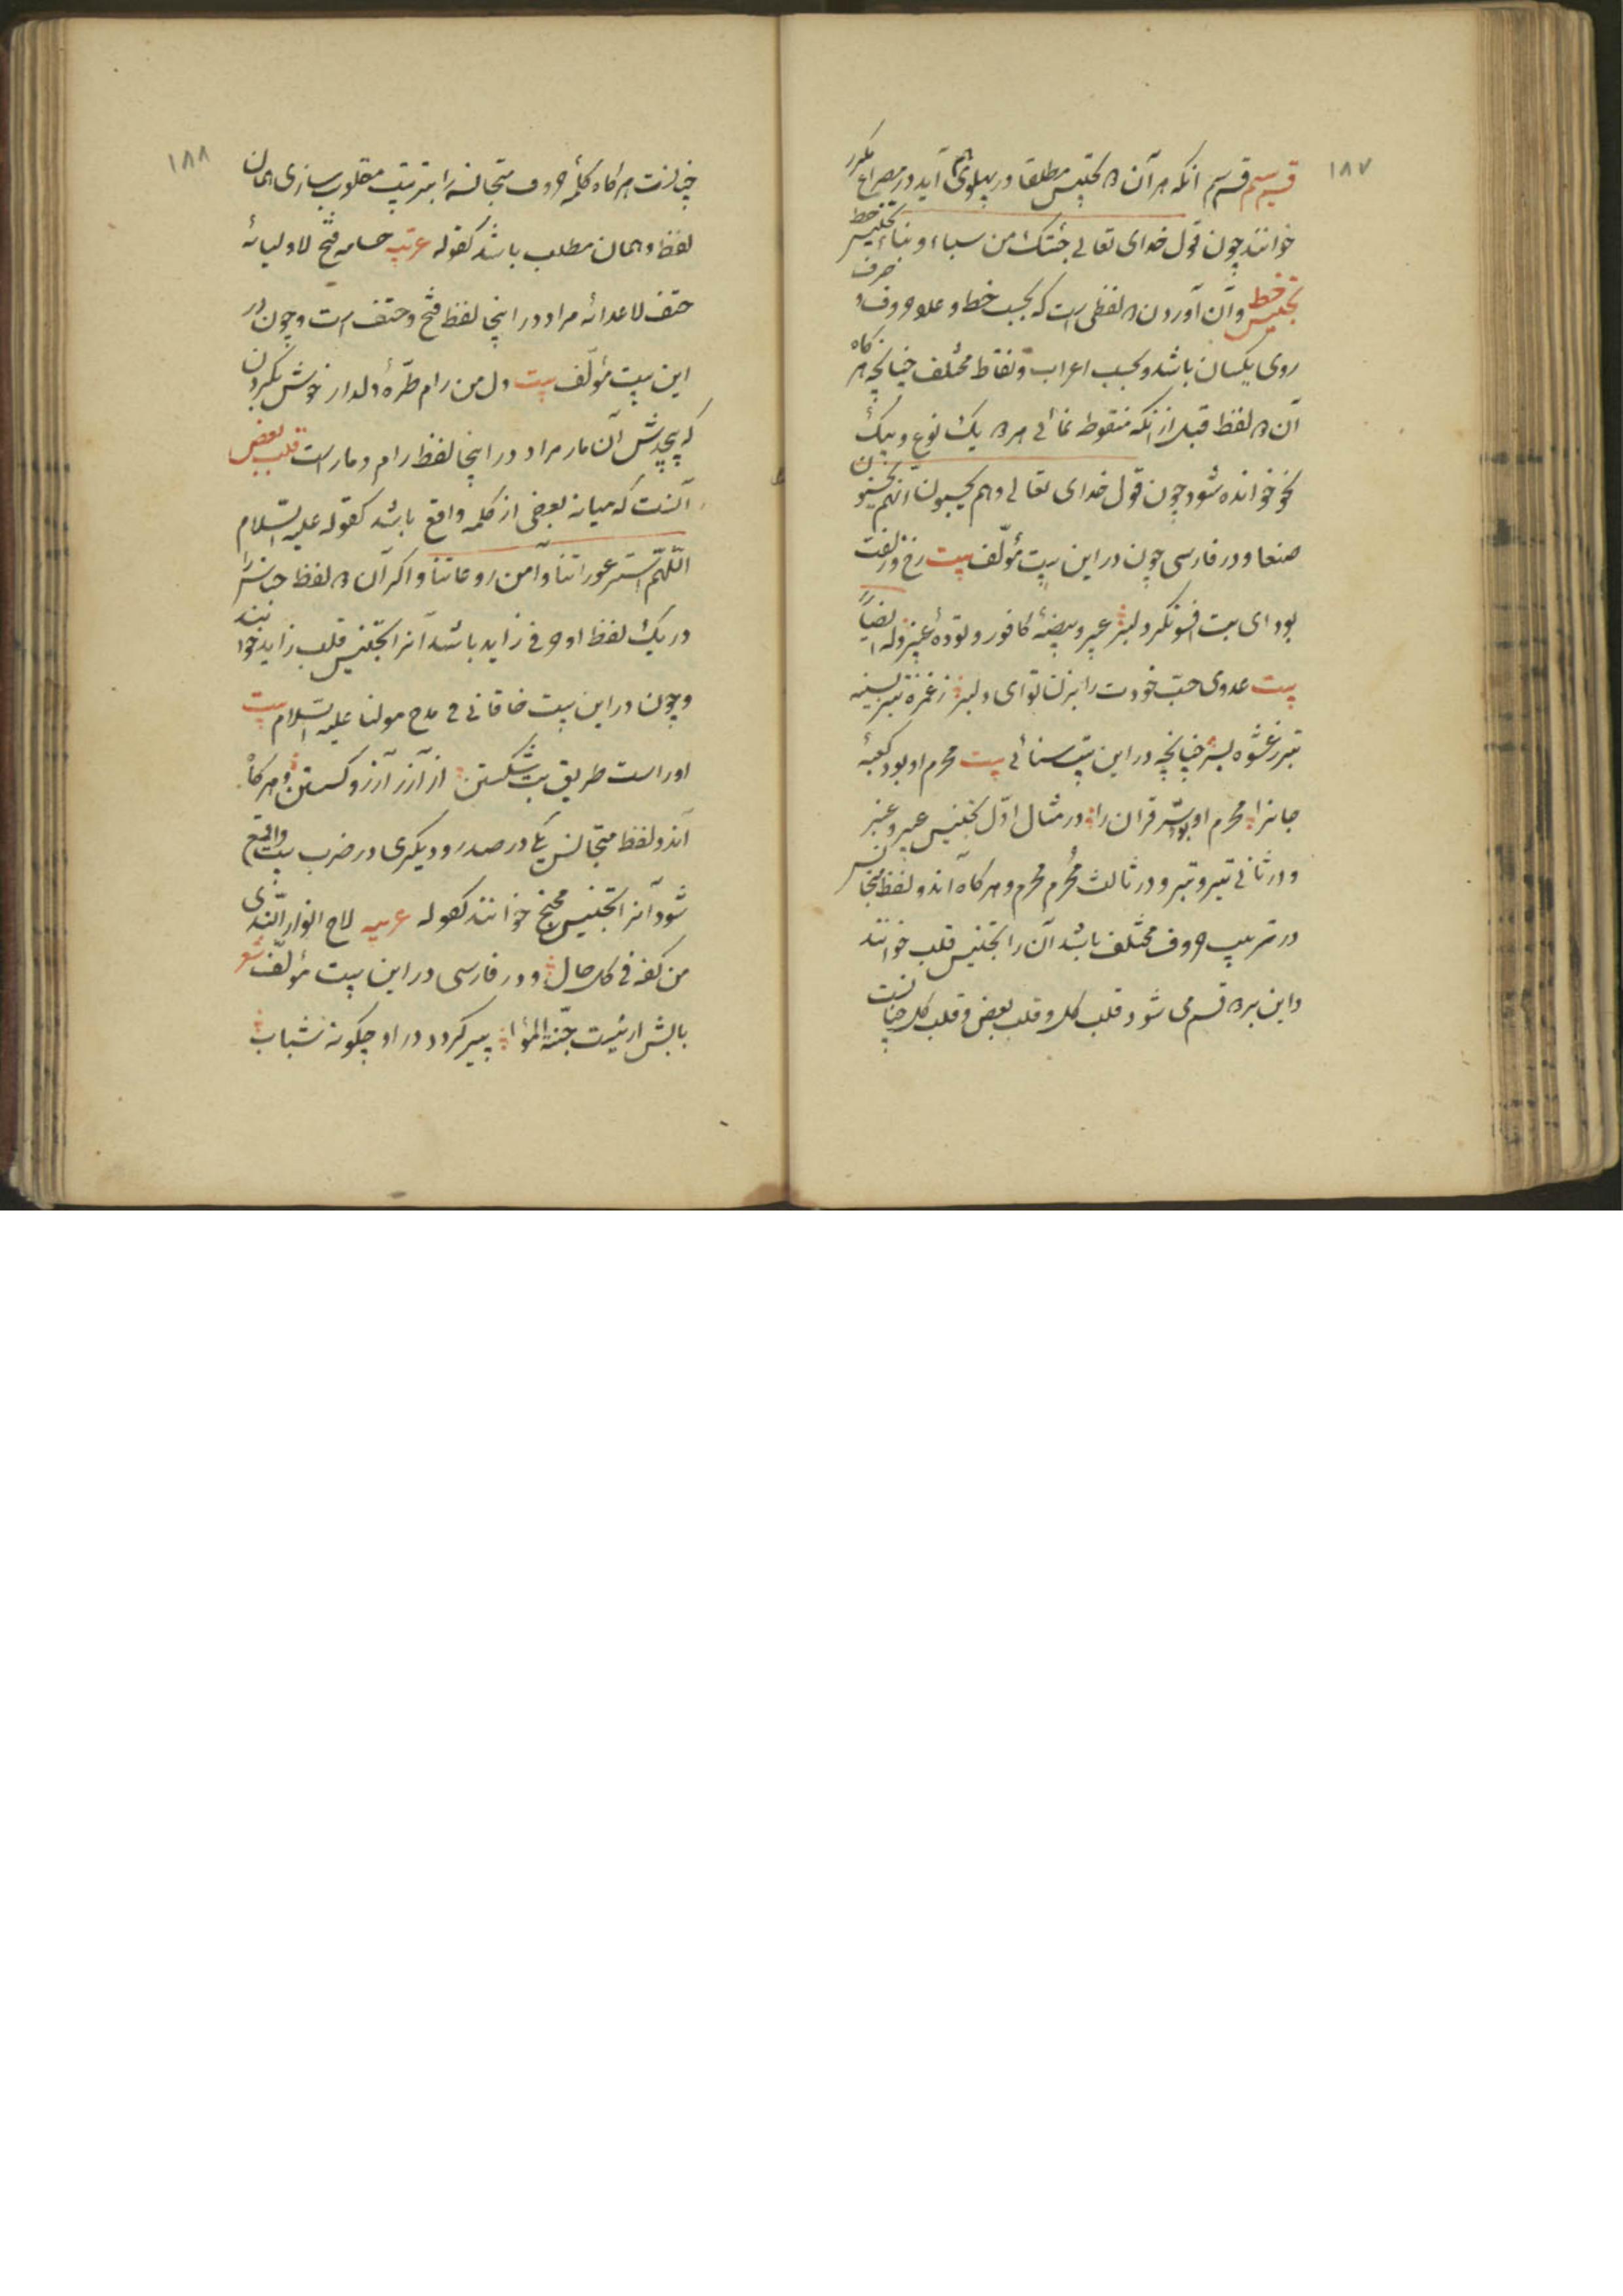 ۱۸۷
قسم سیم قسم سیم آنکه هر آن دو تجنیس مطلقا در پهلوی هم آید در مصراع مکرر
خوانند چون قول خدای تعالی جئتک من سباء و بناء تجنیس خط
تجنیس خط و آن آوردن دو لفظی است که بحسب خط و علو حروف و حرف
روی یکسان باشد و بحسب اعراب و نقاط مختلف چنانچه هر گاه
آن دو لفظ قبل از آنکه منقوطه نمائی هر دو یک نوع و بیک
نحو خوانده شود چون قول خدای تعالی و هم یحسبون انهم یحسنون
صنعا و در فارسی چون در این بیت مؤلف بیت رخ و زلفت
بود ای بت افسونگر دلبر عبیر و بیضهٔ کافور و تودهٔ عنبر وله ایضا
بیت عدوی حبّ خودت را بزن تو ای دلبر ز غمزه تیر بسینه
تبر ز عشوه بسر چنانچه در این بیت سنائی بیت محرم او بود کعبهٔ
جانرا محرم او بود سرّ قرآن را در مثال اوّل تجنیس عبیر و عنبر
و در ثانی تیر و تبر و در ثالث مُحرم محرم و هر گاه آن دو لفظ متجانس
در ترتیب حروف مختلف باشد آن را تجنیس قلب خوانند
و این بر دو قسم می شود قلب کل و قلب بعض و قلب کل چنانست
۱۸۸
چنانست هر گاه کلمهٔ حروف متجانسه را بترتیب مقلوب سازی همان
لفظ و همان مطلب باشد کقوله عربیه حسامه فتح لاولیائه
حتف لاعدائه مراد در اینجا لفظ فتح و حتف است و چون در
این بیت مؤلف بیت دل من رام طرّهٔ دلدار خوش بگردن
که پیچدش آن مار مراد در اینجا لفظ رام و مار است قلب بعض
آنست که میانه بعضی از کلمه واقع باشد کقوله علیه السلام
اللّهم استر عوراتنا و آمن روعاتنا و اگر آن دو لفظ جناس را
در یک لفظ او حرفی زاید باشد آنرا تجنیس قلب زاید خوانند
و چون در این بیت خاقانی فی مدح مولنا علیه السلام بیت
او راست طریق بت شکستن از آزر آرزو گسستن و هر گاه
آندو لفظ متجانس یکی در صدر و دیگری در ضرب بیت واقع
شود آنرا تجنیس مجنح خوانند کقوله عربیه لاح انوار الندی
من کفه فی کل حال و در فارسی در این بیت مؤلف شعر
بابش ار نیست جنّة المأوا پیر گردد در او چگونه شباب